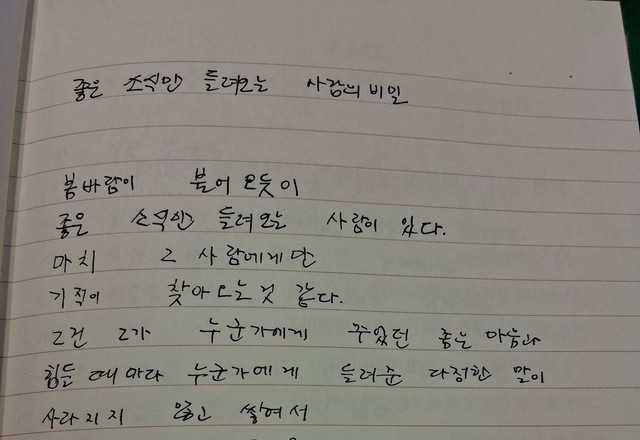 좋은 소식만 들려오는 사람의 비밀
봄바람이 불어 오듯이
좋은 소식만 들려오는 사람이 있다.
마치 그 사람에게만
기적이 찾아오는것 같다.
그건 그가 누군가에게 주었던 좋은 마음과
힘들 때 마다 누군가에게 들려준 다정한 말이
사라지지 않고 쌓여서